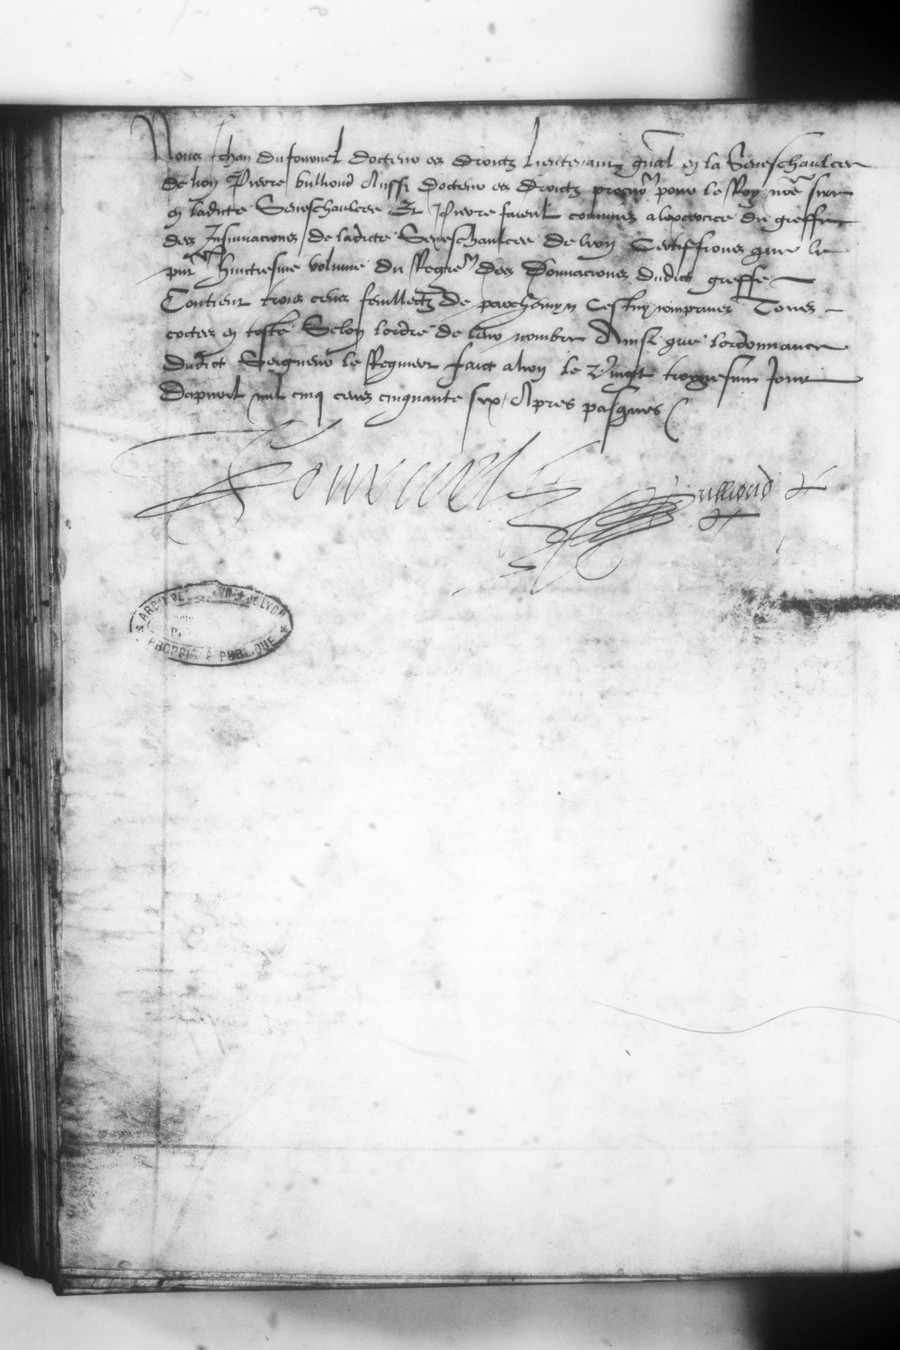 Nous Jehan du fournel docteur es droictz lieutenant gnal en la Seneschaulcee
de lion Pierre bullioud Aussi docteur es droictz procur pour le Roy nre sire
en ladicte Seneschaulcee Et Pierre commis a lexercice du greffe
des Insinuacions de ladicte Seneschaulcee de lyon Certiffions que le
pnt huictiesme volume du Regre des Donnacions dudict greffe
Contient trois cens feulletz de parchemyn Cestuy comprins Tous
cottez en teste Selon lordre de leur nombre Ainsi que lordonnance
dudict Seigneur le Requiert faict a lyon le vingt troysiesme Jour
dapvril mil cinq cens cinquante six Apres pasques
Fournel Bullioud
ARCH DE LYON
PROPRIÉTÉ PUBLIQUE